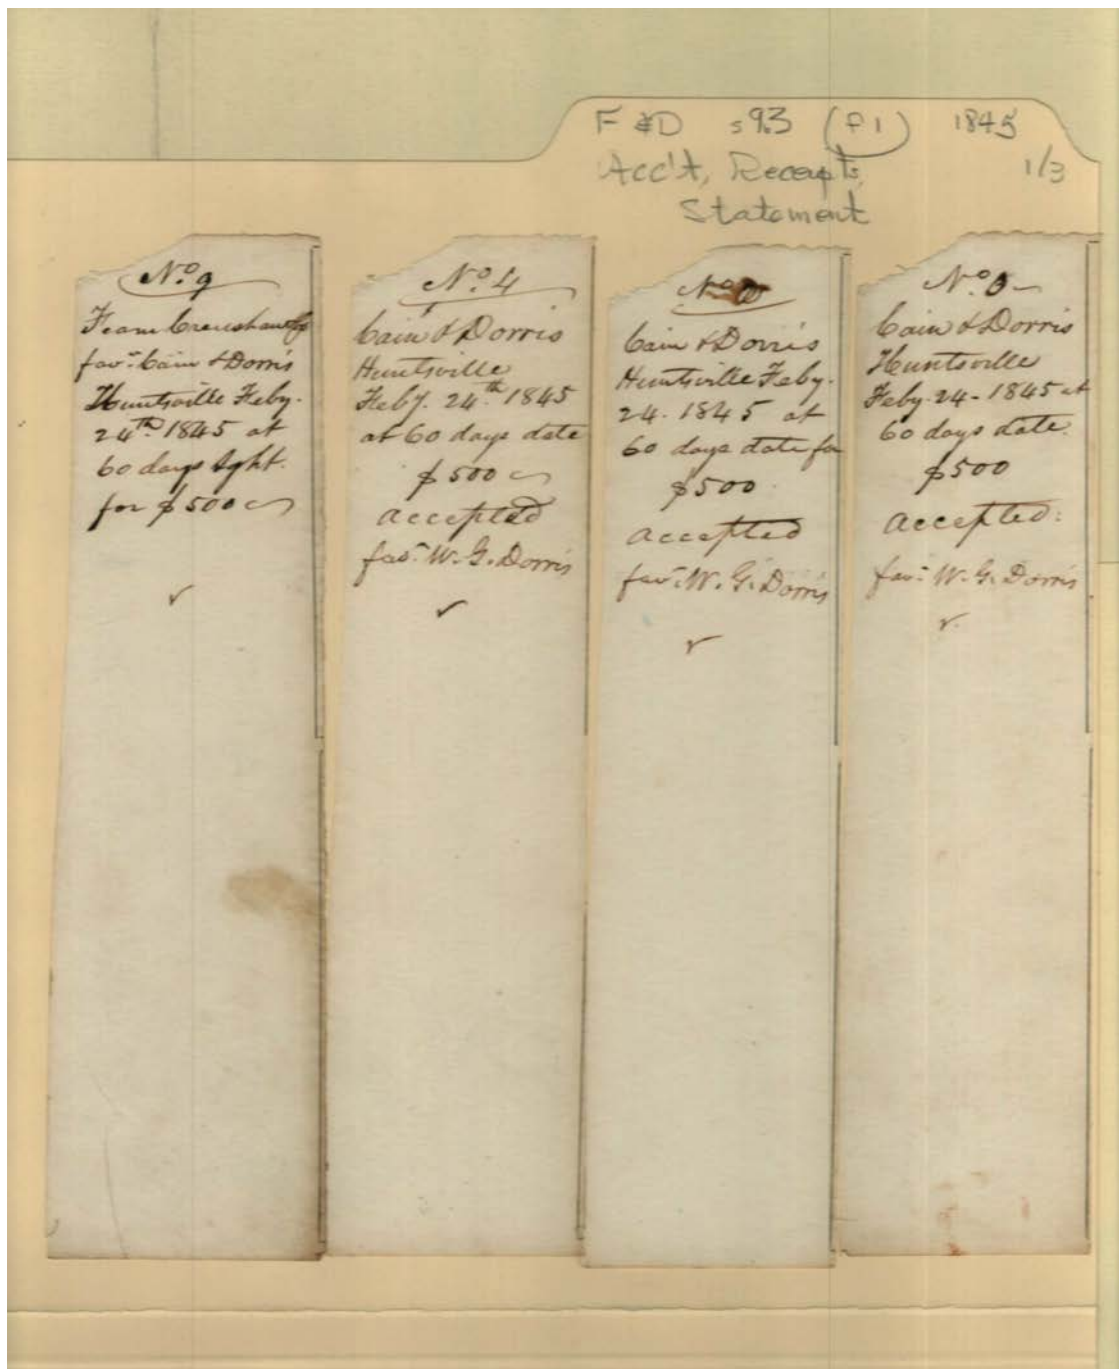 F & D s93 (f1) 1845
Acc't, Receipts, 1/3
Statement
No. 9
Fearn Crenshaw
favr. Cain & Dorris
Huntsville Feby.
24th. 1845 at
60 days sght.
for $500
No. 4
Cain & Dorris
Huntsville
Feby. 24th. 1845
at 60 days date
$500
accepted
favr. W. G. Dorris
No.
Cain & Dorris
Huntsville Feby.
24. 1845 at
60 days date for
$500
accepted
favr. W. G. Dorris
No.
Cain & Dorris
Huntsville
Feby. 24 - 1845 at
60 days date.
$500
accepted:
favr. W. G. Dorris